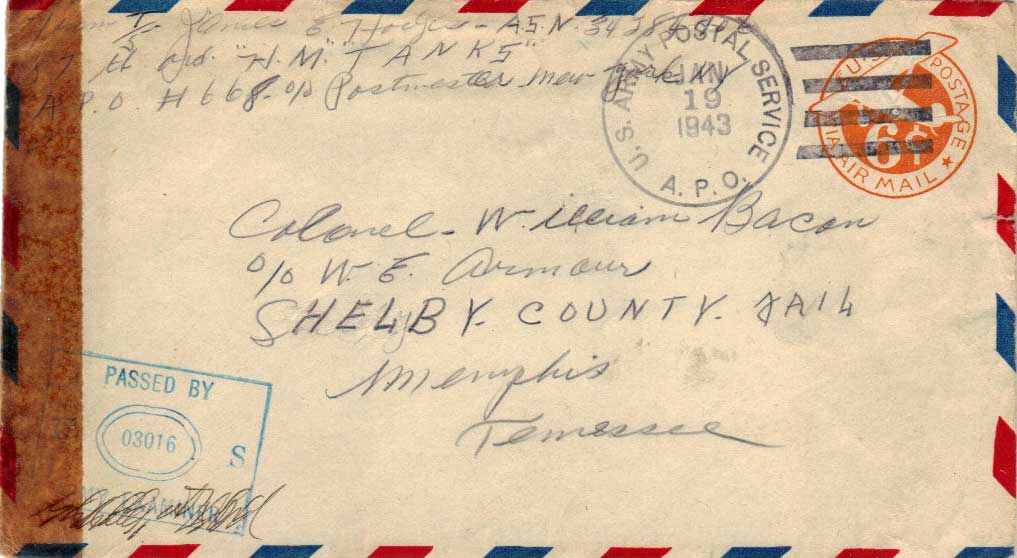 James E. Hodges - A.S.N. 34
57 th Ord. "H.M." TANKS"
A.P.O. # 668 c/o Postmaster New York NY
U.S. ARMY POSTAL SERVICE
JAN
19
1943
A.P.O.
U.S. POSTAGE
VIA AIR MAIL
6¢
Colonel - William Bacon
c/o W. E. Armour
SHELBY. COUNTY. JAIL
Memphis
Tennessee
PASSED BY
03016
S
ARMY EXAMINER